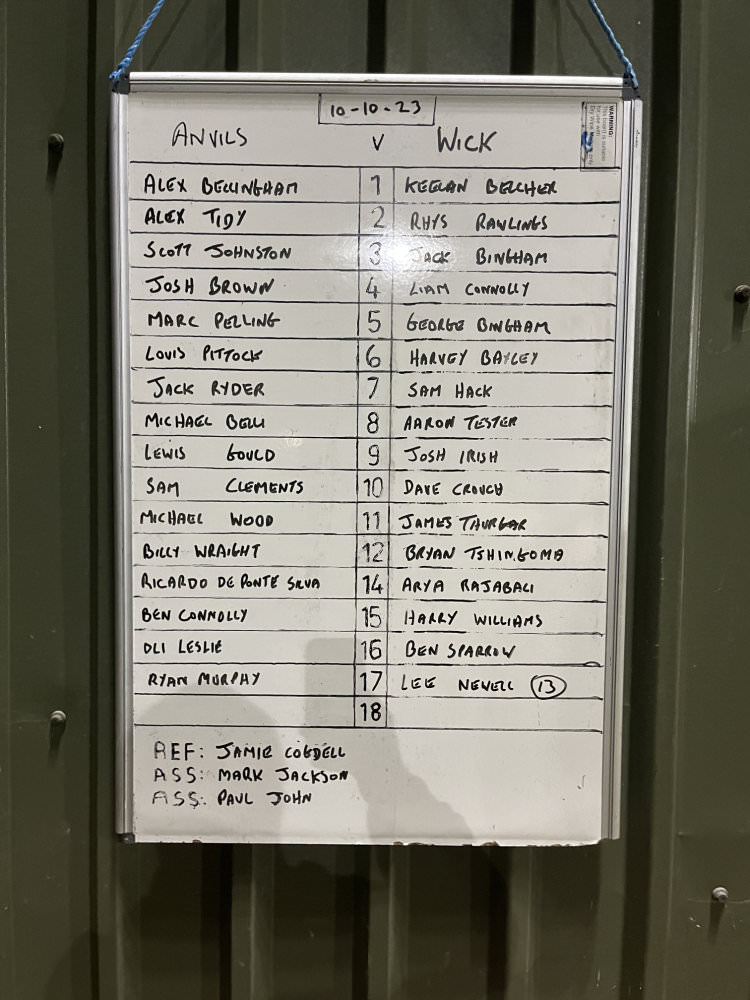 10-10-23
ANVILS V WICK
ALEX BELLINGHAM 1 KEELAN BELCHER
ALEX TIDY 2 RHYS RAWLINGS
SCOTT JOHNSTON 3 JACK BINGHAM
JOSH BROWN 4 LIAM CONNOLLY
MARC PELLING 5 GEORGE BINGHAM
LOUIS PITTOCK 6 HARVEY BAYLEY
JACK RYDER 7 SAM HACK
MICHAEL BELLI 8 AARON TESTER
LEWIS GOULD 9 JOSH IRISH
SAM CLEMENTS 10 DAVE CROUCH
MICHAEL WOOD 11 JAMES THURGAR
BILLY WRAIGHT 12 BRYAN TSHINGOMA
RICARDO DE PONTE SILVA 14 ARYA RAJABALI
BEN CONNOLLY 15 HARRY WILLIAMS
OLI LESLIE 16 BEN SPARROW
RYAN MURPHY 17 LEE NEWELL 13
18
REF: JAMIE COGDELL
ASS: MARK JACKSON
ASS: PAUL JOHN
WARNING:
This board is suitable
for use with